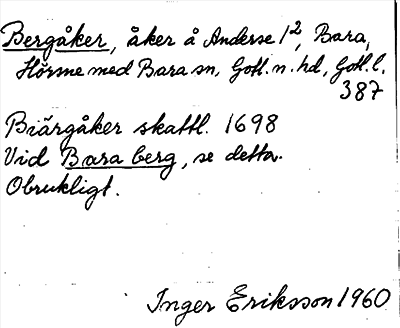 Bergåker, åker å Anderse 1², Bara,
Hörsne med Bara sn, Gotl. n. hd, Gotl. l.
387
Biärgåker skattl. 1698
Vid Bara berg, se detta.
Obrukligt.
Inger Eriksson 1960